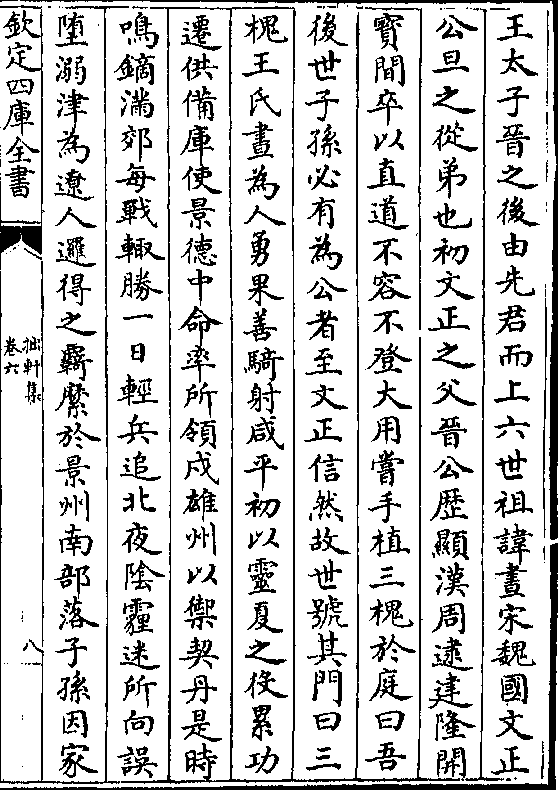 王太子晉之後由先君而上六世祖諱晝宋魏國文正
公旦之從弟也初文正之父晉公歴顯漢周逮建隆開
寳間卒以直道不容不登大用嘗手植三槐於庭曰吾
後世子孫必有為公者至文正信然故世號其門曰三
槐王氏晝為人勇果善騎射咸平初以靈夏之役累功
遷供備庫使景德中命率所領戍雄州以禦契丹是時
鳴鏑滿郊每戰輙勝一日輕兵追北夜陰霾迷所向誤
堕溺津為遼人邏得之羇縻於景州南部落子孫因家
欽定四庫全書
拙軒集
卷六
八